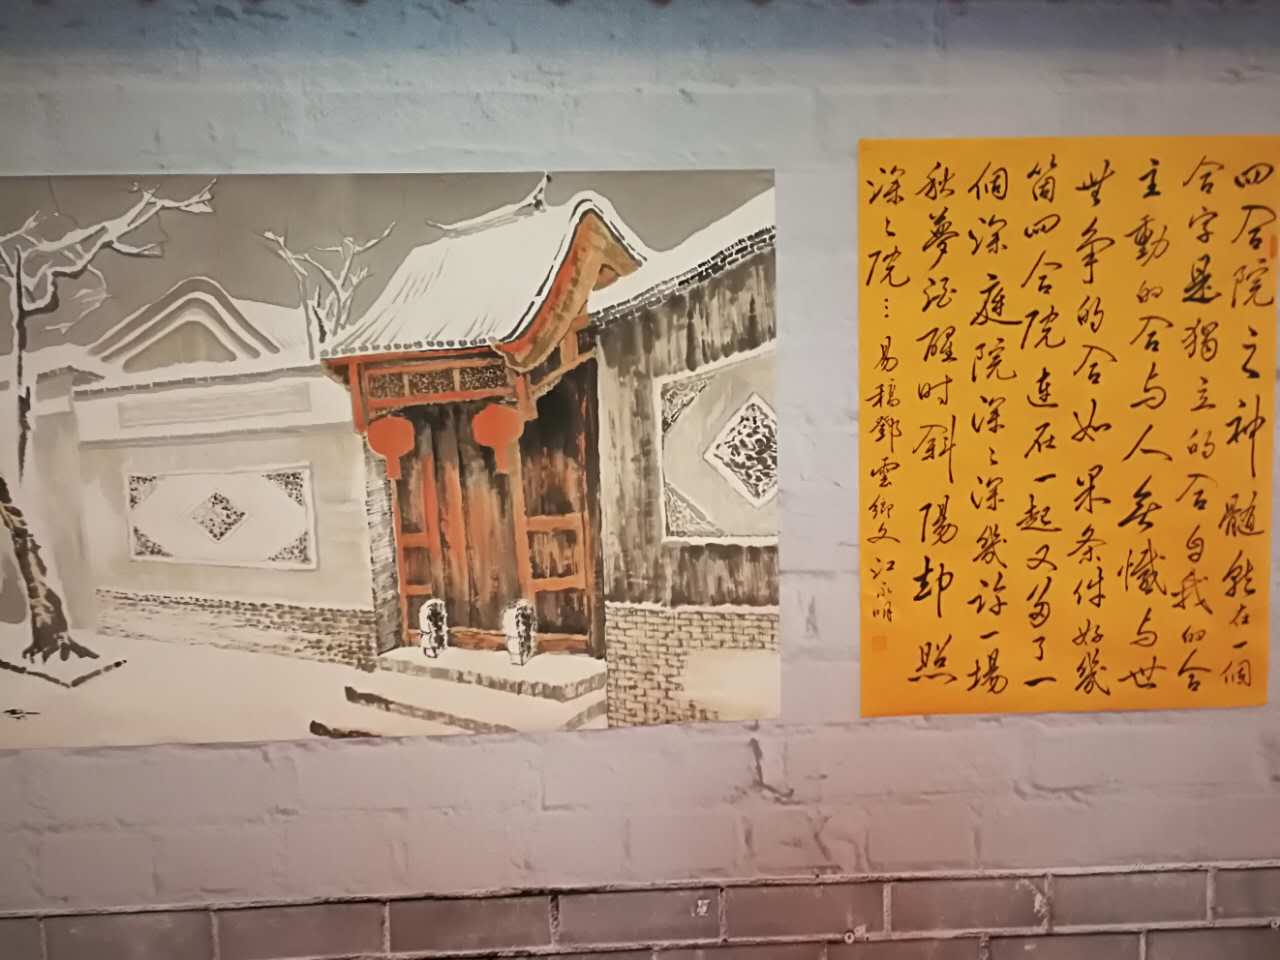 四合院之神髓就在一個
合字是獨立的合自我的合
主動的合与人無懺与世
無争的合如果条件好幾
箇四合院連在一起又多了一
個深庭院深〻深幾許一場
秋夢酒醒时斜陽却照
深〻院…易稿鄧雲鄉文 江永明